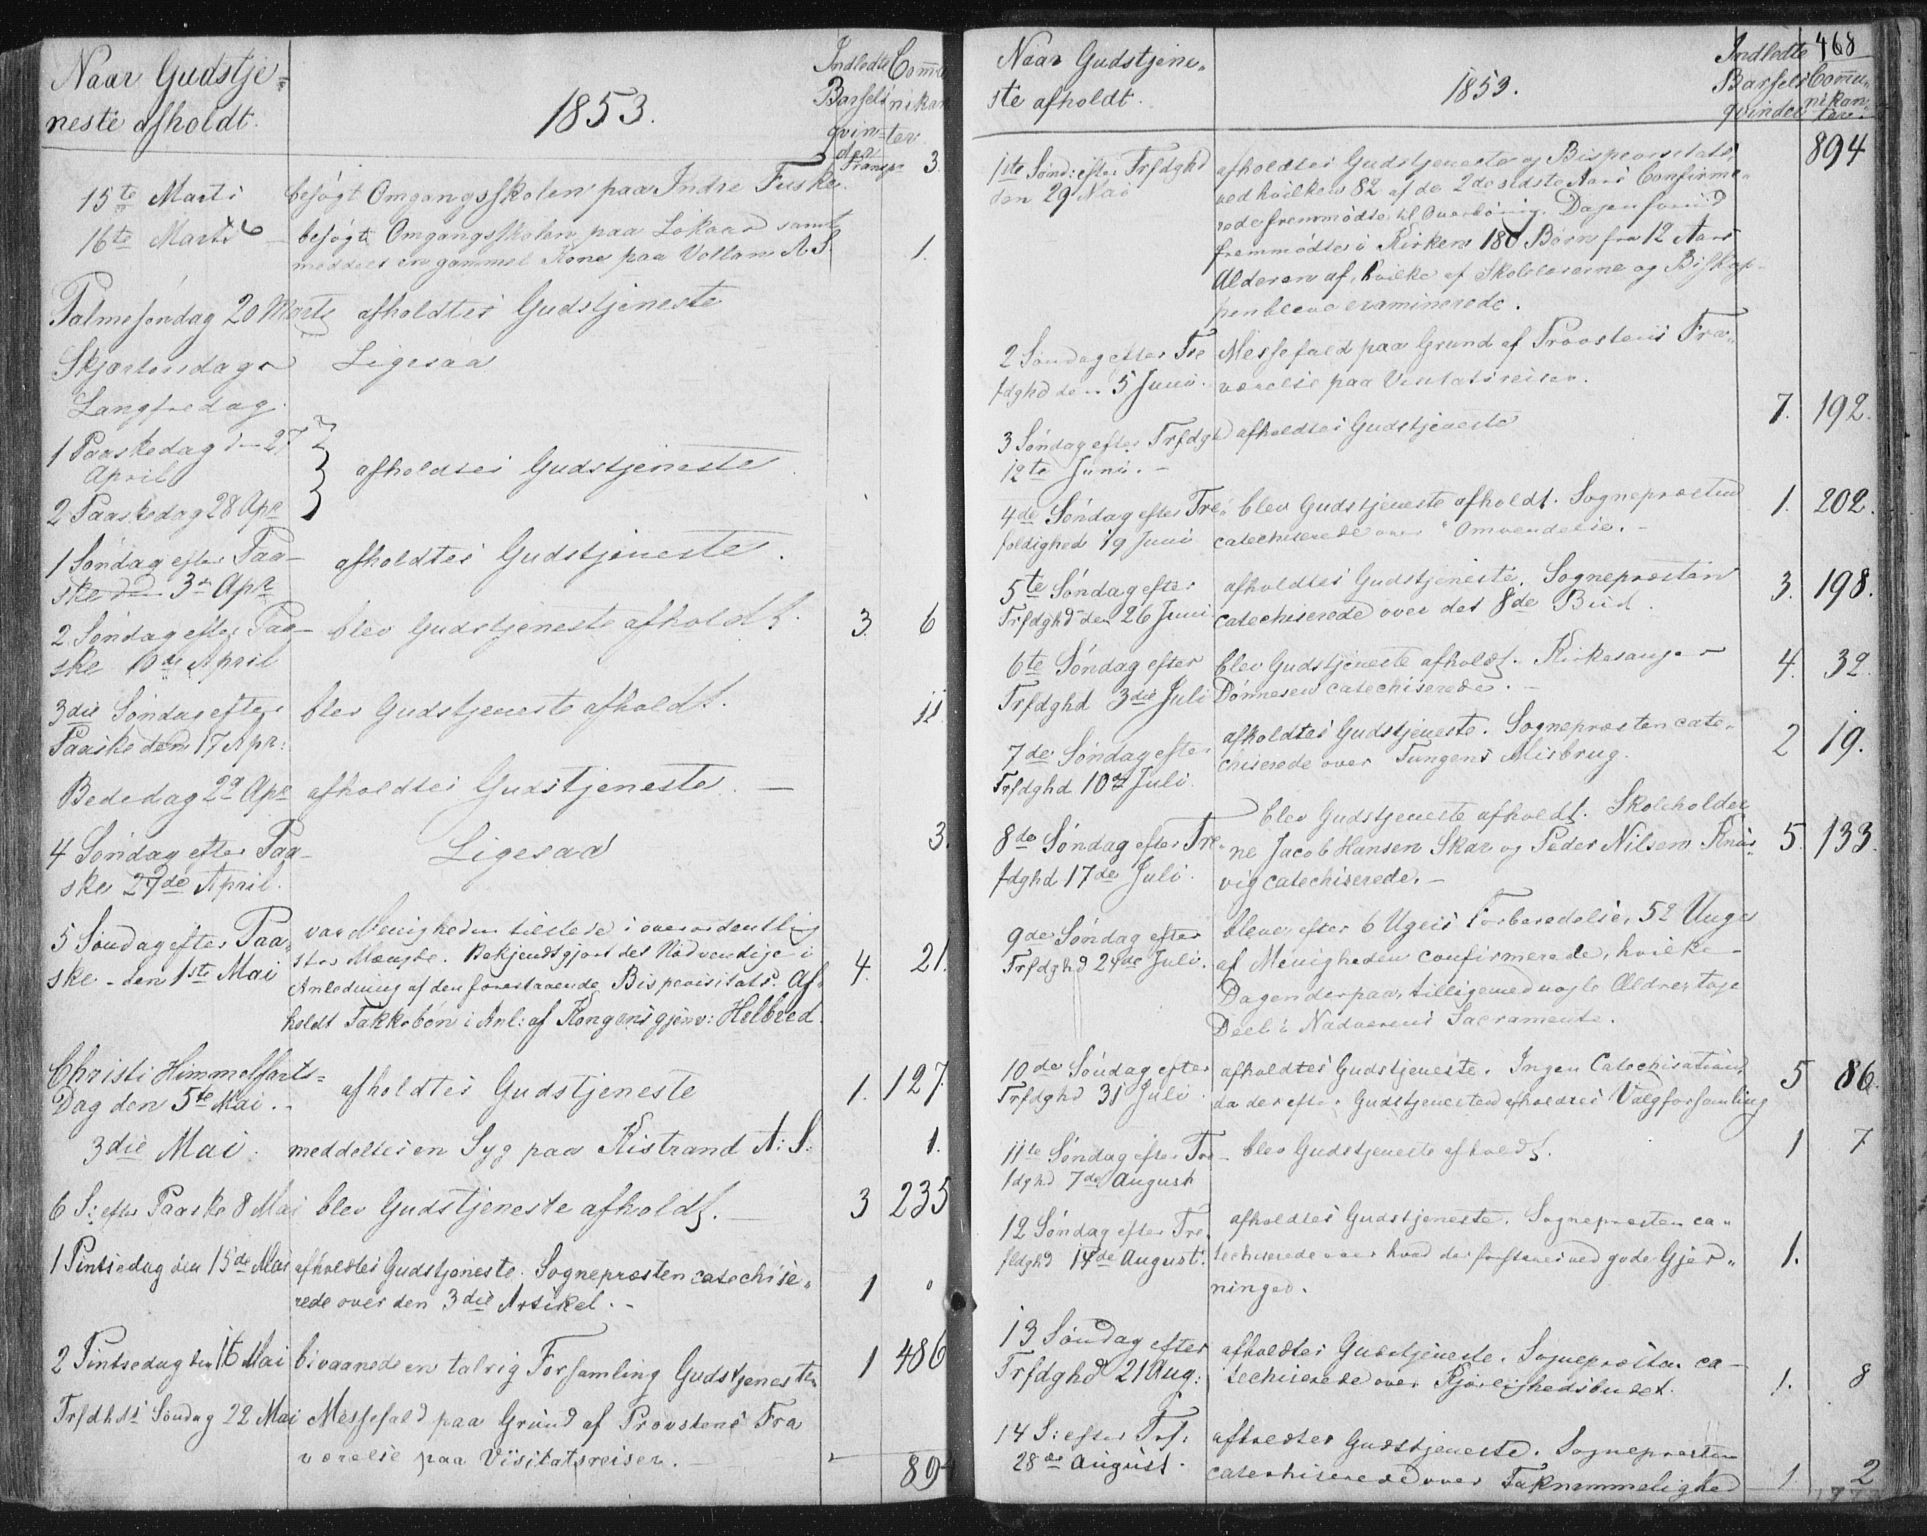 Naar Gudstje-
neste afholdt.
1853.
Indledte
Barsel
qvin-
der
Comu
nikan
ter
Transp. 3.
15te Marts
besøgt Omgangsskolen paa Indre
16te Marts
besøgt Omgangsskolen paa Lokaar samt
meddelt en gammel Kone paa Voltan A. S. 1.
Palmesøndag 20 Marts afholdtes Gudstjeneste
Skjærtorsdag
Ligesaa
Langfredag.
1 Paaskedag d. 27
April
2 Paaskedag 28 Apr
afholdtes Gudstjeneste
1 Søndag efter Paa-
ske d. 3de Apr
afholdtes Gudstjeneste.
2. Søndag efter Paa-
ske 10de April
blev Gudstjeneste afholdt. 3. 6
3die Søndag efter
Paaske den 17 Apr:
blev Gudstjeneste afholdt. 11
Bededag 22 Apr afholdtes Gudstjeneste. —
4 Søndag efter Paa-
ske 24de April.
Ligesaa 3.
5 Søndag efter Paa-
ske - den 1ste Mai
var Menigheden tilstede i overordentlig
stor Mængde. Bekjendtgjort det Nødvendige i
Anledning af den forestaaende Bispevisitats. Af-
holdt Takkebøn i Anl: af Kongens gjenv: Helbred. 4. 21.
Christi Himmelfarts-
Dag den 5te Mai.
afholdtes Gudstjeneste 1. 127.
3die Mai.
meddeltes en Syg paa Kistrand A: S: 1.
6 S: efter Paaske 8 Mai blev Gudstjeneste afholdt. — 3 235
1 Pintsedag den 15de Mai afholdtes Gudstjeneste. Sognepræsten catechise-
rede over den 3die Artikel. - 1 "
2 Pintsedag den 16 Mai bivaanede en talrig Forsamling Gudstjenesten 1 486
Trfdhds Søndag 22 Mai Messefald paa Grund af Provstens Fra
værelse paa Visitatsreiser. -
894
Naar Gudstjene-
ste afholdt.
1853.
Indledte
Barsels
qvinder
468
Comu-
nikan-
ter.
894
1ste Sønd: efter Trfdghd
den 29 Mai
afholdtes Gudstjeneste og Bispevisitats,
ved hvilken 82 af de 2de sidste Aars Confirme-
rede fremmødte til Overhøring. Dagen forud
fremmødte i Kirken 180 Børn fra 12 Aars
Alderen af, hvilke af Skolelærerne og Biskop-
pen bleve examinerede.
2 Søndag efter Tre
fdghd den 5 Juni.
Messefald paa Grund af Provstens Fra-
værelse paa Visitatsreiser.
3 Søndag efter Trfdgh
12te Juni. -
afholdtes Gudstjeneste 7. 192.
4de Søndag efter Tre-
foldighed 19 Juni
blev Gudstjeneste afholdt. Sognepræsten
catechiserede over Omvendelse. - 1. 202.
5te Søndag efter
Trfdghd den 26 Juni
afholdtes Gudstjeneste. Sognepræsten
catechiserede over det 8de Bud. 3. 198.
6te Søndag efter
Trfdghd 3die Juli
blev Gudstjeneste afholdt. Kirkesanger
Dønnesen catechiserede. - 4. 32.
7de Søndag efter
Trfdghd 10de Juli.
afholdtes Gudstjeneste. Sognepræsten cate-
chiserede over Tungens Misbrug. 2 19.
8de Søndag efter Tre-
fdghd 17de Juli.
blev Gudstjeneste afholdt. Skoleholder
ne Jacob Hansen Skar og Peder Nilsen
vig catechiserede. - 5. 133.
9de Søndag efter
Trfdghd 24de Juli.
bleve efter 6 Ugers Forberedelse, 52 Unge
af Menigheden confirmerede, hvilke
Dagen derpaa, tilligemed nogle Ældre, toge
Deel i Nadverens Sacramente.
10de Søndag efter
Trfdghd 31 Juli
afholdtes Gudstjeneste. Ingen Catechisation,
da der efter Gudstjenesten afholdtes Valgforsamling 5 86.
11te Søndag efter Tre-
fdghd 7de August
blev Gudstjeneste afholdt. 1 7
12 Søndag efter Tre
fldghd 14de August.
afholdtes Gudstjeneste. Sognepræsten ca-
techiserede over hvad der forstaaes ved gode Gjer-
ninger. 1.
13 Søndag efter
Trfdghd 21 Aug:
afholdtes Gudstjeneste. Sognepræsten ca-
techiserede over Kjærlighedsbudet. 1. 8
14 S: efter Tref:
28de August.
afholdtes Gudstjeneste. Sognepræsten
catechiserede over Taknemmelighed 1 2